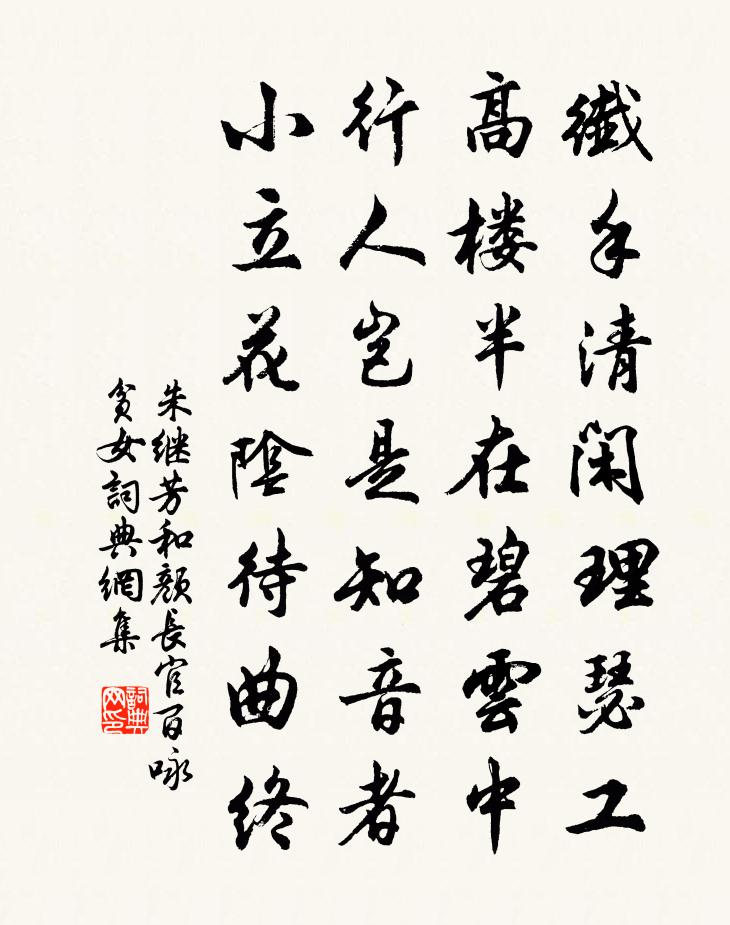 纖手清閑理瑟工
高楼半在碧雲中
行人豈是知音者
小立花陰待曲终
朱继芳和顔長官百咏
貧女詞典網集
詞典网印